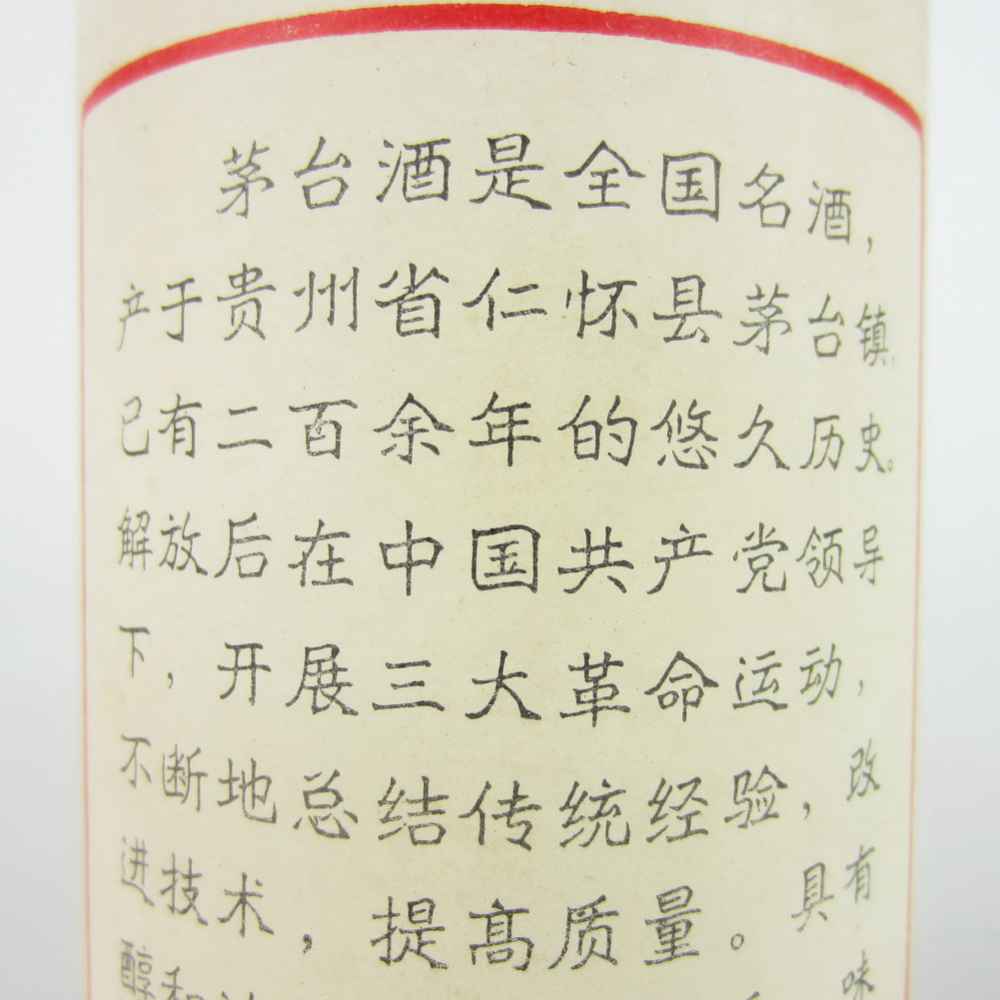 茅台酒是全国名酒，
产于贵州省仁怀县茅台镇，
已有二百余年的悠久历史。
解放后在中国共产党领导
下，开展三大革命运动，
不断地总结传统经验，改
进技术，提高质量。具有
醇和 味